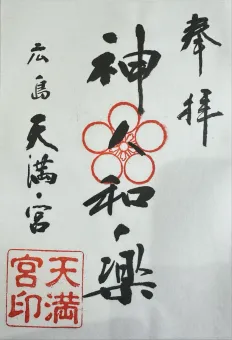 奉拝
神人和楽
広島天満宮
天満
宮印